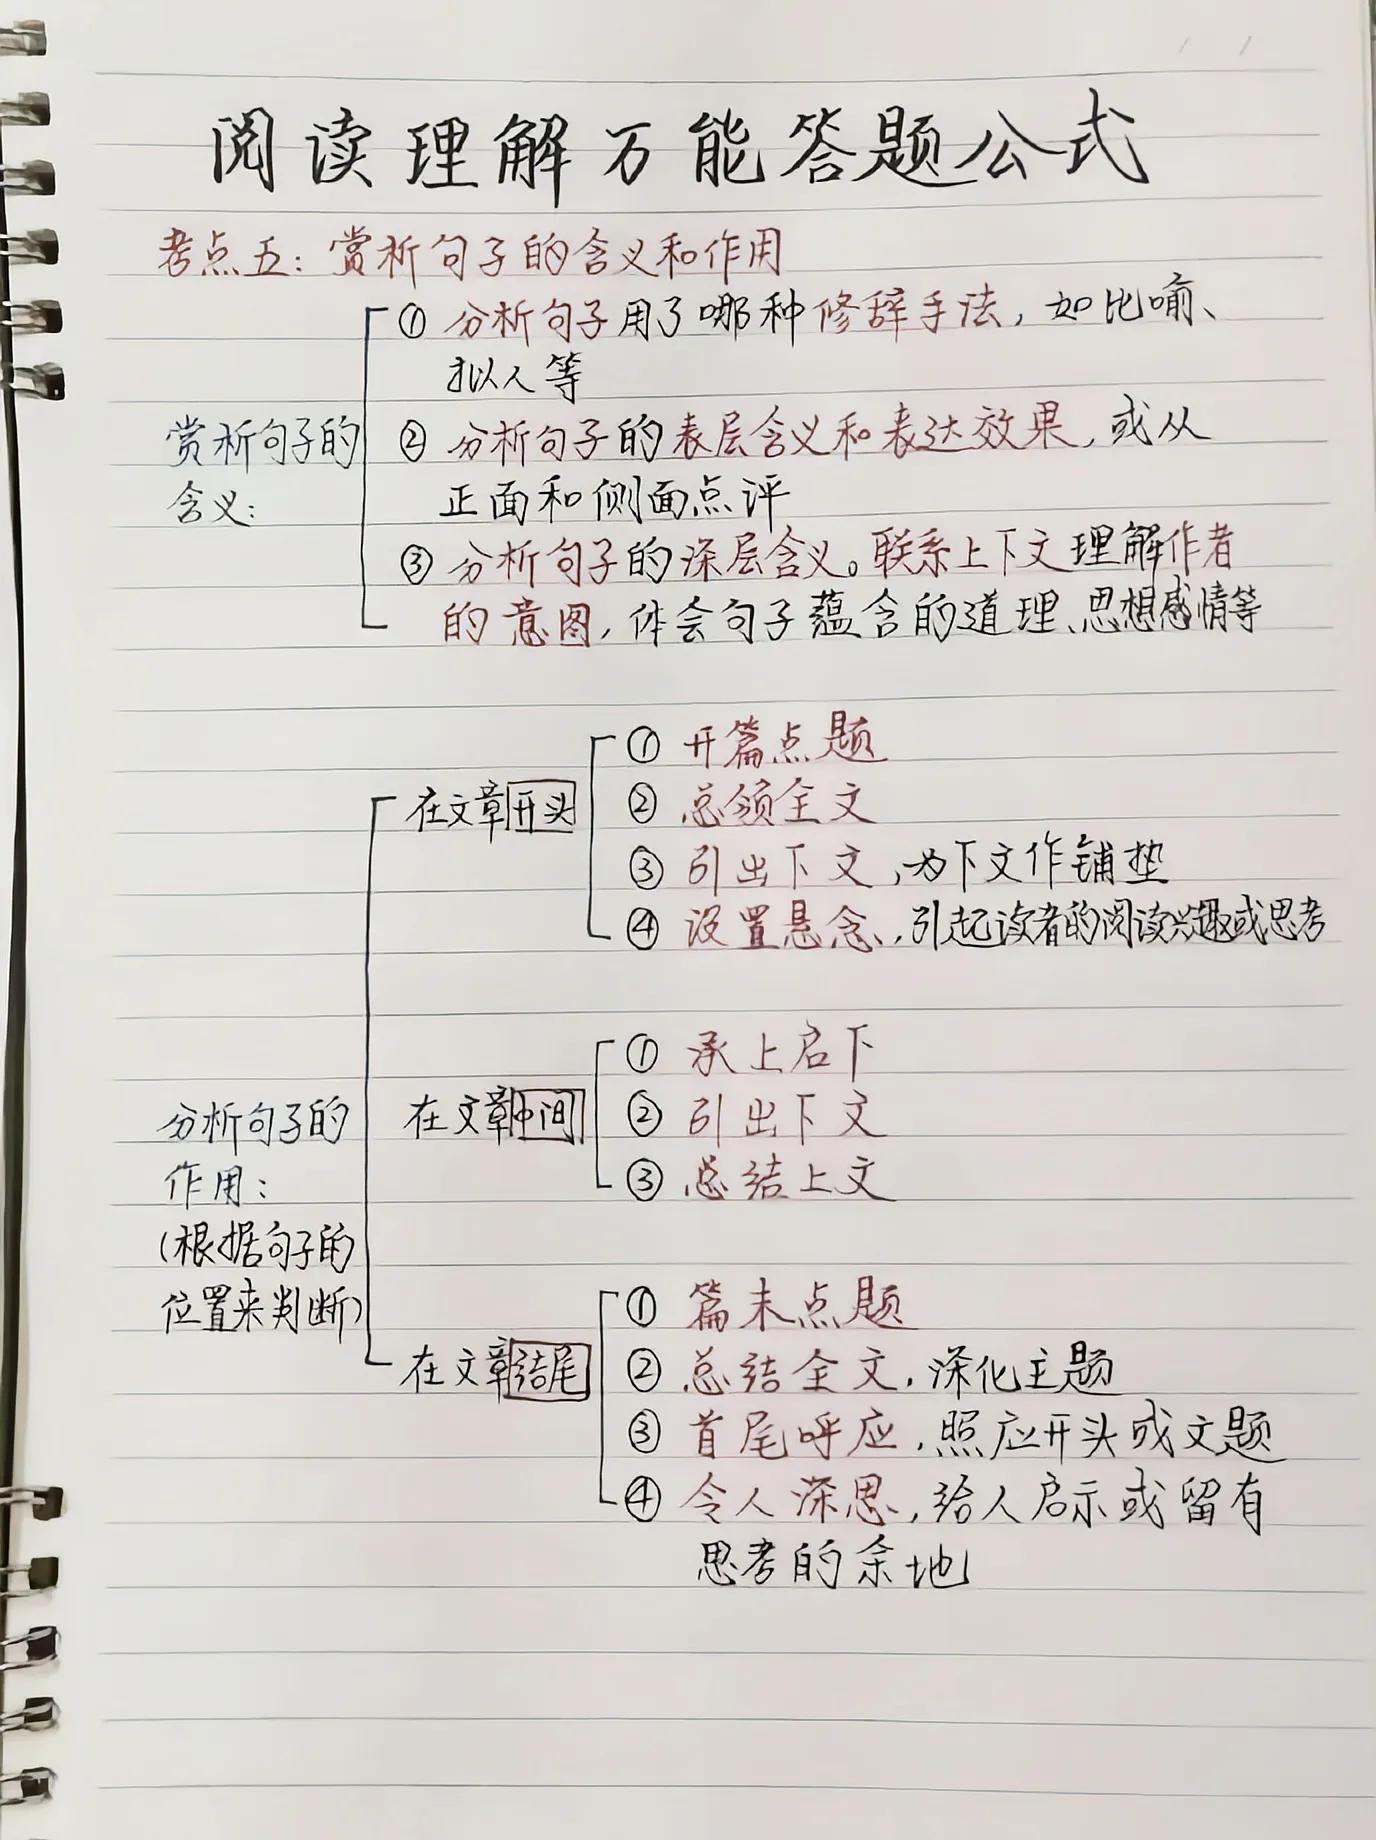 阅读理解万能答题公式
考点五：赏析句子的含义和作用
赏析句子的
含义：
① 分析句子用了哪种修辞手法，如比喻、
拟人等
② 分析句子的表层含义和表达效果，或从
正面和侧面点评
③ 分析句子的深层含义。联系上下文理解作者
的意图，体会句子蕴含的道理、思想感情等
分析句子的
作用：
（根据句子的
位置来判断）
在文章开头
① 开篇点题
② 总领全文
③ 引出下文，为下文作铺垫
④ 设置悬念，引起读者的阅读兴趣或思考
在文章中间
① 承上启下
② 引出下文
③ 总结上文
在文章结尾
① 篇末点题
② 总结全文，深化主题
③ 首尾呼应，照应开头或文题
④ 令人深思，给人启示或留有
思考的余地